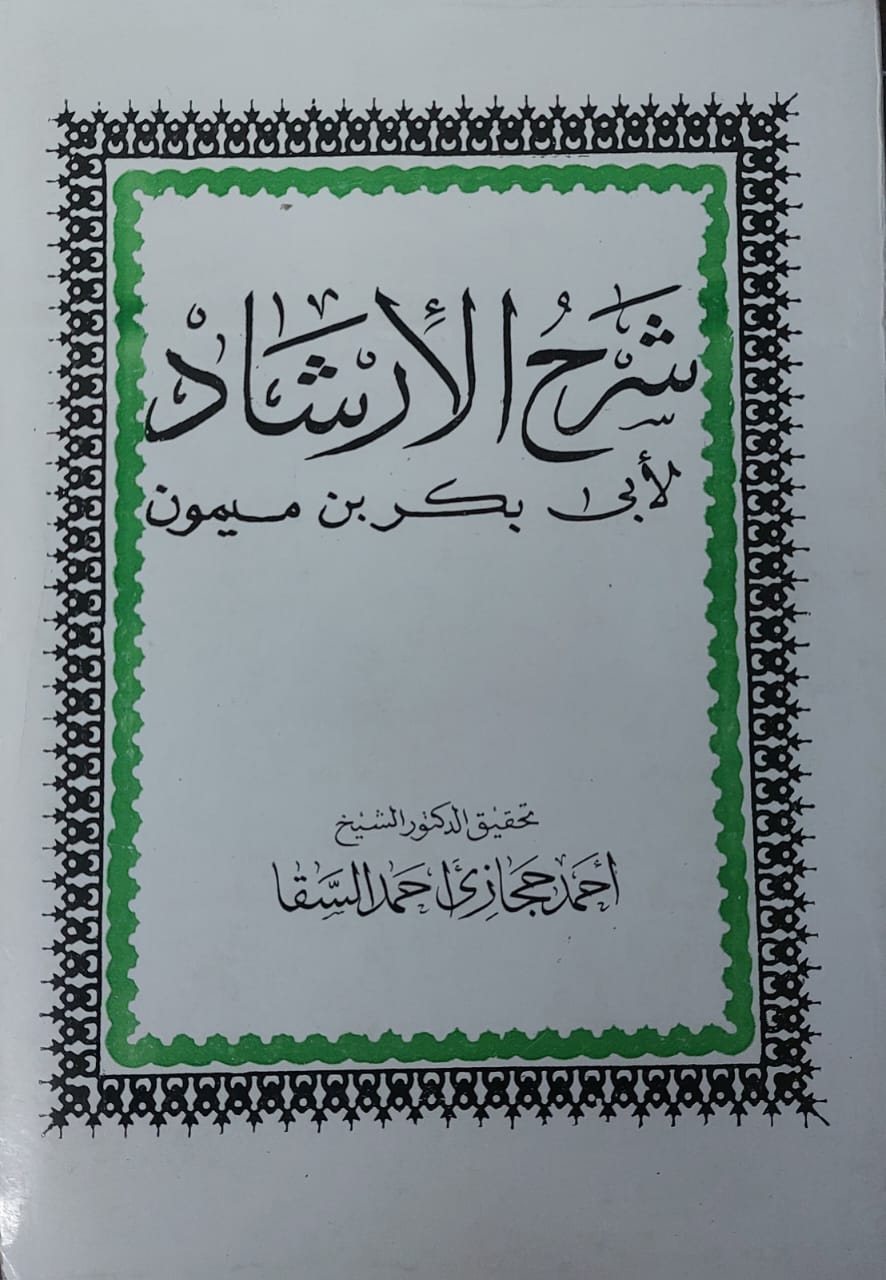 شَرْحُ الإرشاد
لأبى بكر بن ميمون
تحقيق الدكتور الشيخ
أحمد حجازى أحمد السقا